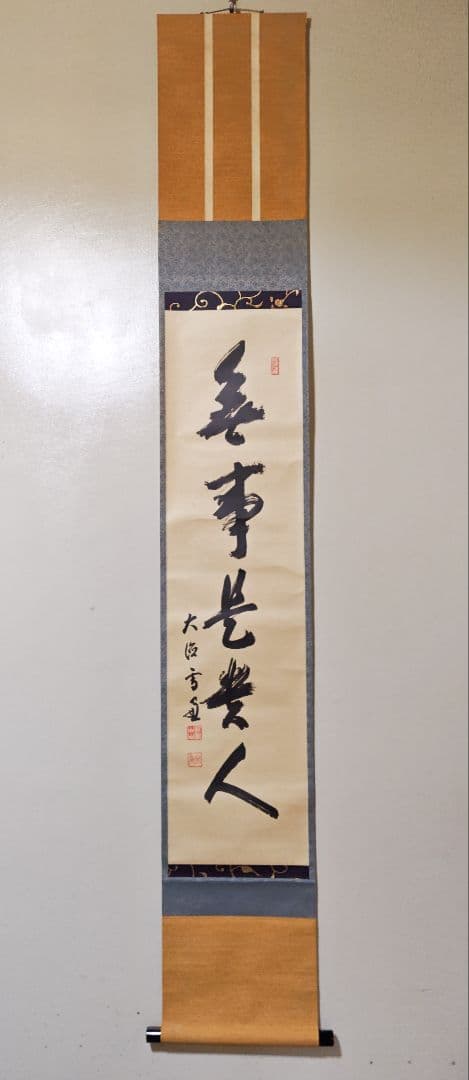 無事是貴人
大徳雪